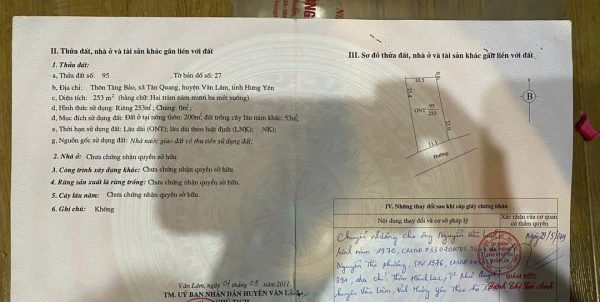 II. Thửa đất, nhà ở và tài sản khác gắn liền với đất
1. Thửa đất:
a, Thửa đất số: 95 , Tờ bản đồ số: 27
b, Địa chỉ: Thôn Tăng Bảo, xã Tân Quang, huyện Văn Lâm, tỉnh Hưng Yên
c, Diện tích: 253 m² (bằng chữ: Hai trăm năm mươi ba mét vuông)
d, Hình thức sử dụng: Riêng 253m²; Chung: 0m²;
đ, Mục đích sử dụng đất: Đất ở tại nông thôn: 200m², đất trồng cây lâu năm khác: 53m²,
e, Thời hạn sử dụng đất: Lâu dài (ONT); lâu dài theo luật định (LNK); NK);
g, Nguồn gốc sử dụng đất: Nhà nước giao đất có thu tiền sử dụng đất;
2. Nhà ở: Chưa chứng nhận quyền sở hữu.
3. Công trình xây dựng khác: Chưa chứng nhận quyền sở hữu.
4. Rừng sản xuất là rừng trồng: Chưa chứng nhận quyền sở hữu.
5. Cây lâu năm: Chưa chứng nhận quyền sở hữu.
6. Ghi chú: Không
Văn Lâm, ngày 03 2011
TM. UỶ BAN NHÂN DÂN HUYỆN VĂN LÂM
III. Sơ đồ thửa đất, nhà ở và tài sản khác gắn liền với đất
10.5
ONT 95
253
21.9
Đường
B
IV. Những thay đổi sau khi cấp giấy chứng nhận
Nội dung thay đổi và cơ sở pháp lý
Xác nhận của cơ quan
có thẩm quyền
Chuyển nhượng cho ông Nguyễn Văn
sinh năm 1970, CMND
Nguyễn Thị Phương, SN 1976, CMND
391, địa chỉ: Thôn
huyện Văn Lâm, tỉnh Hưng Yên Theo
GIÁM ĐỐC